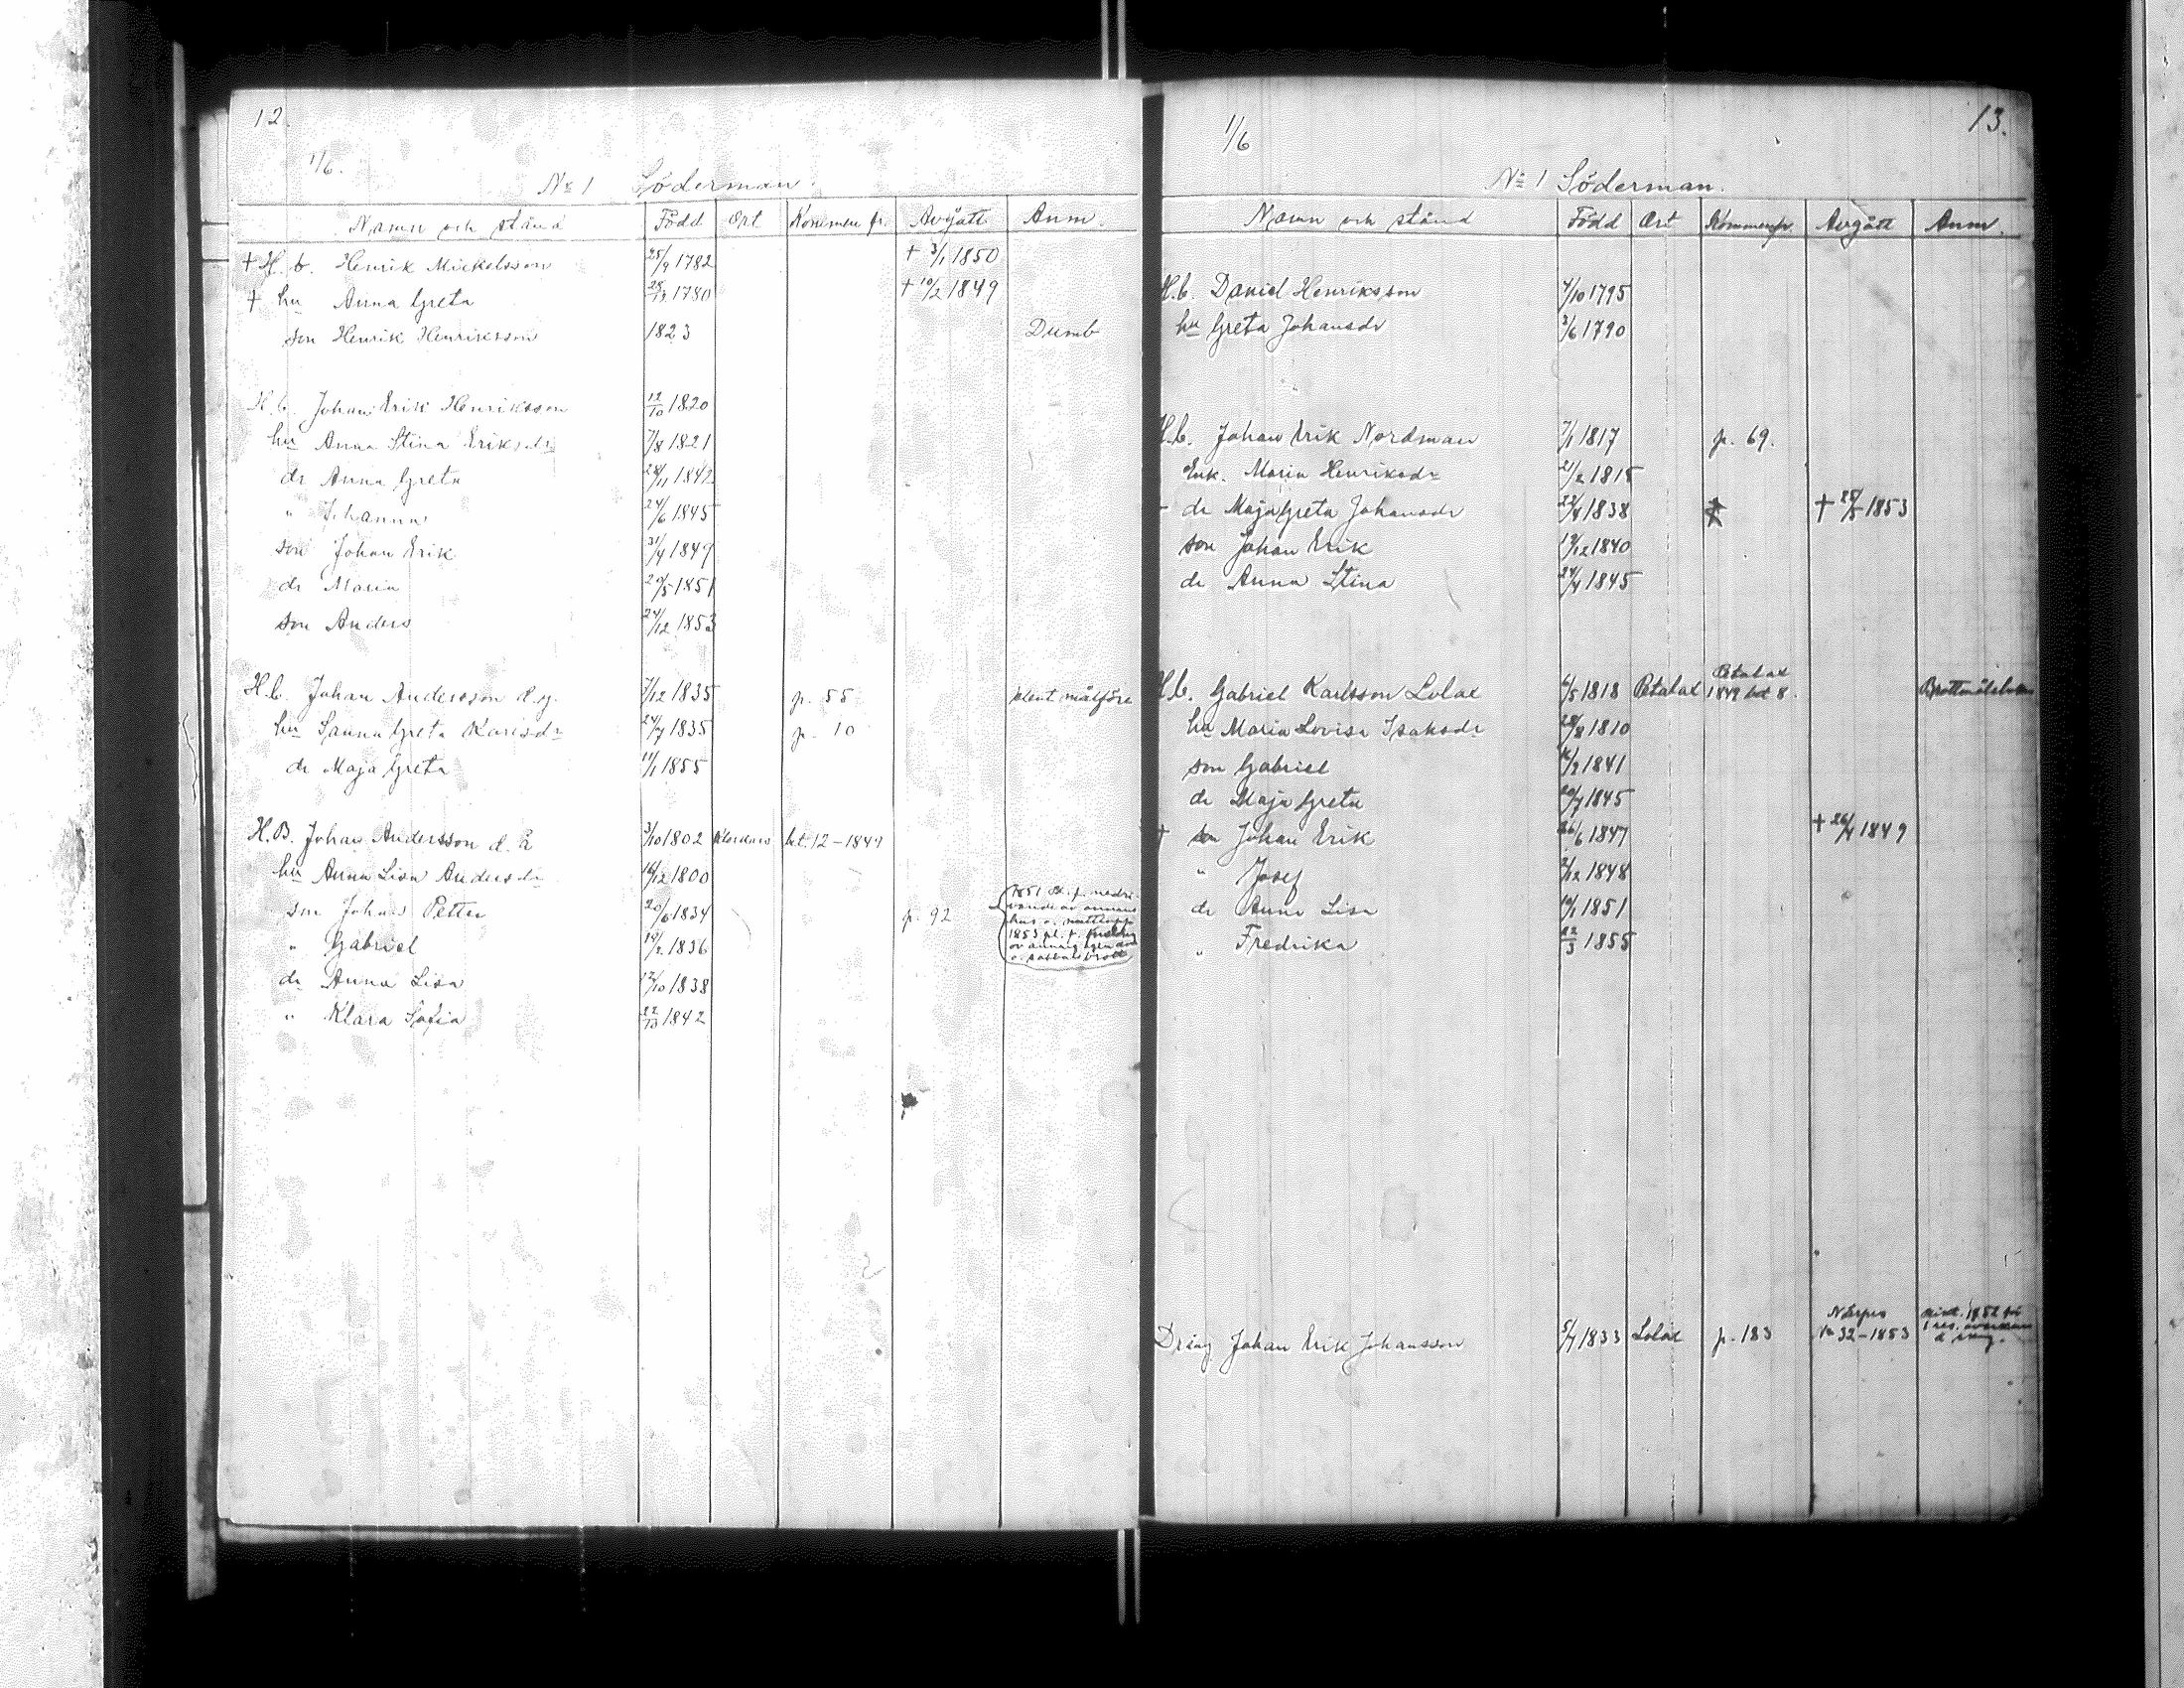 12.
1/6.
No 1 Söderman.
Namn och stånd Född Ort Kommen fr. Avgått Anm.
+ H. b. Henrik Mickelsson 25/9 1782 + 3/1 1850
+ hu Anna Greta 1780 + 10/2 1849
son Henrik Henriksson 1823 Dumb
H. b. Johan Erik Henriksson 12/10 1820
hu Anna Stina Eriksdr 7/8 1821
dr Anna Greta 28/11 1842
" Johanna 24/6 1845
son Johan Erik 1849
dr Maria 20/5 1851
son Anders 24/12 1853
H.b. Johan Andersson d.y. 7/12 1835 p. 55 klent målföre
hu Sanna Greta Karlsdr 24/7 1835 p. 10
dr Maja Greta 11/1 1855
H.B. Johan Andersson d. ä 3/10 1802 bet. 12-1849
hu Anna Lisa Andersdr 16/12 1800
son Johan Petter 20/6 1834 p. 92
" Gabriel 19/2 1836
dr Anna Lisa 12/10 1838
" Klara Sofia 22/10 1842
13.
1/6
No 1 Söderman.
Namn och stånd Född Ort Kommen fr. Avgått Anm.
H.b. Daniel Henriksson 4/10 1795
hu Greta Johansdr 3/6 1790
H.b. Johan Erik Nordman 7/1 1817 p. 69.
Enk. Maria Henriksdr 21/2 1815
dr Maja Greta Johansdr 22/4 1838 + 25/5 1853
son Johan Erik 1840
dr Anna Stina 24/4 1845
Petalax
H.b. Gabriel Karlsson Lolax 6/5 1818 Petalax 1849 bet 8.
hu Maria Lovisa Isaksdr 28/8 1810
son Gabriel 1841
dr Maja Greta 20/7 1845
+ son Johan Erik 26/6 1847 + 26/4 1849
" Josef 2/12 1848
dr Anna Lisa 10/1 1851
" Fredrika 22/3 1855
Närpes
Dräng Johan Erik Johansson 5/7 1833 Lolax p. 183 32-1853